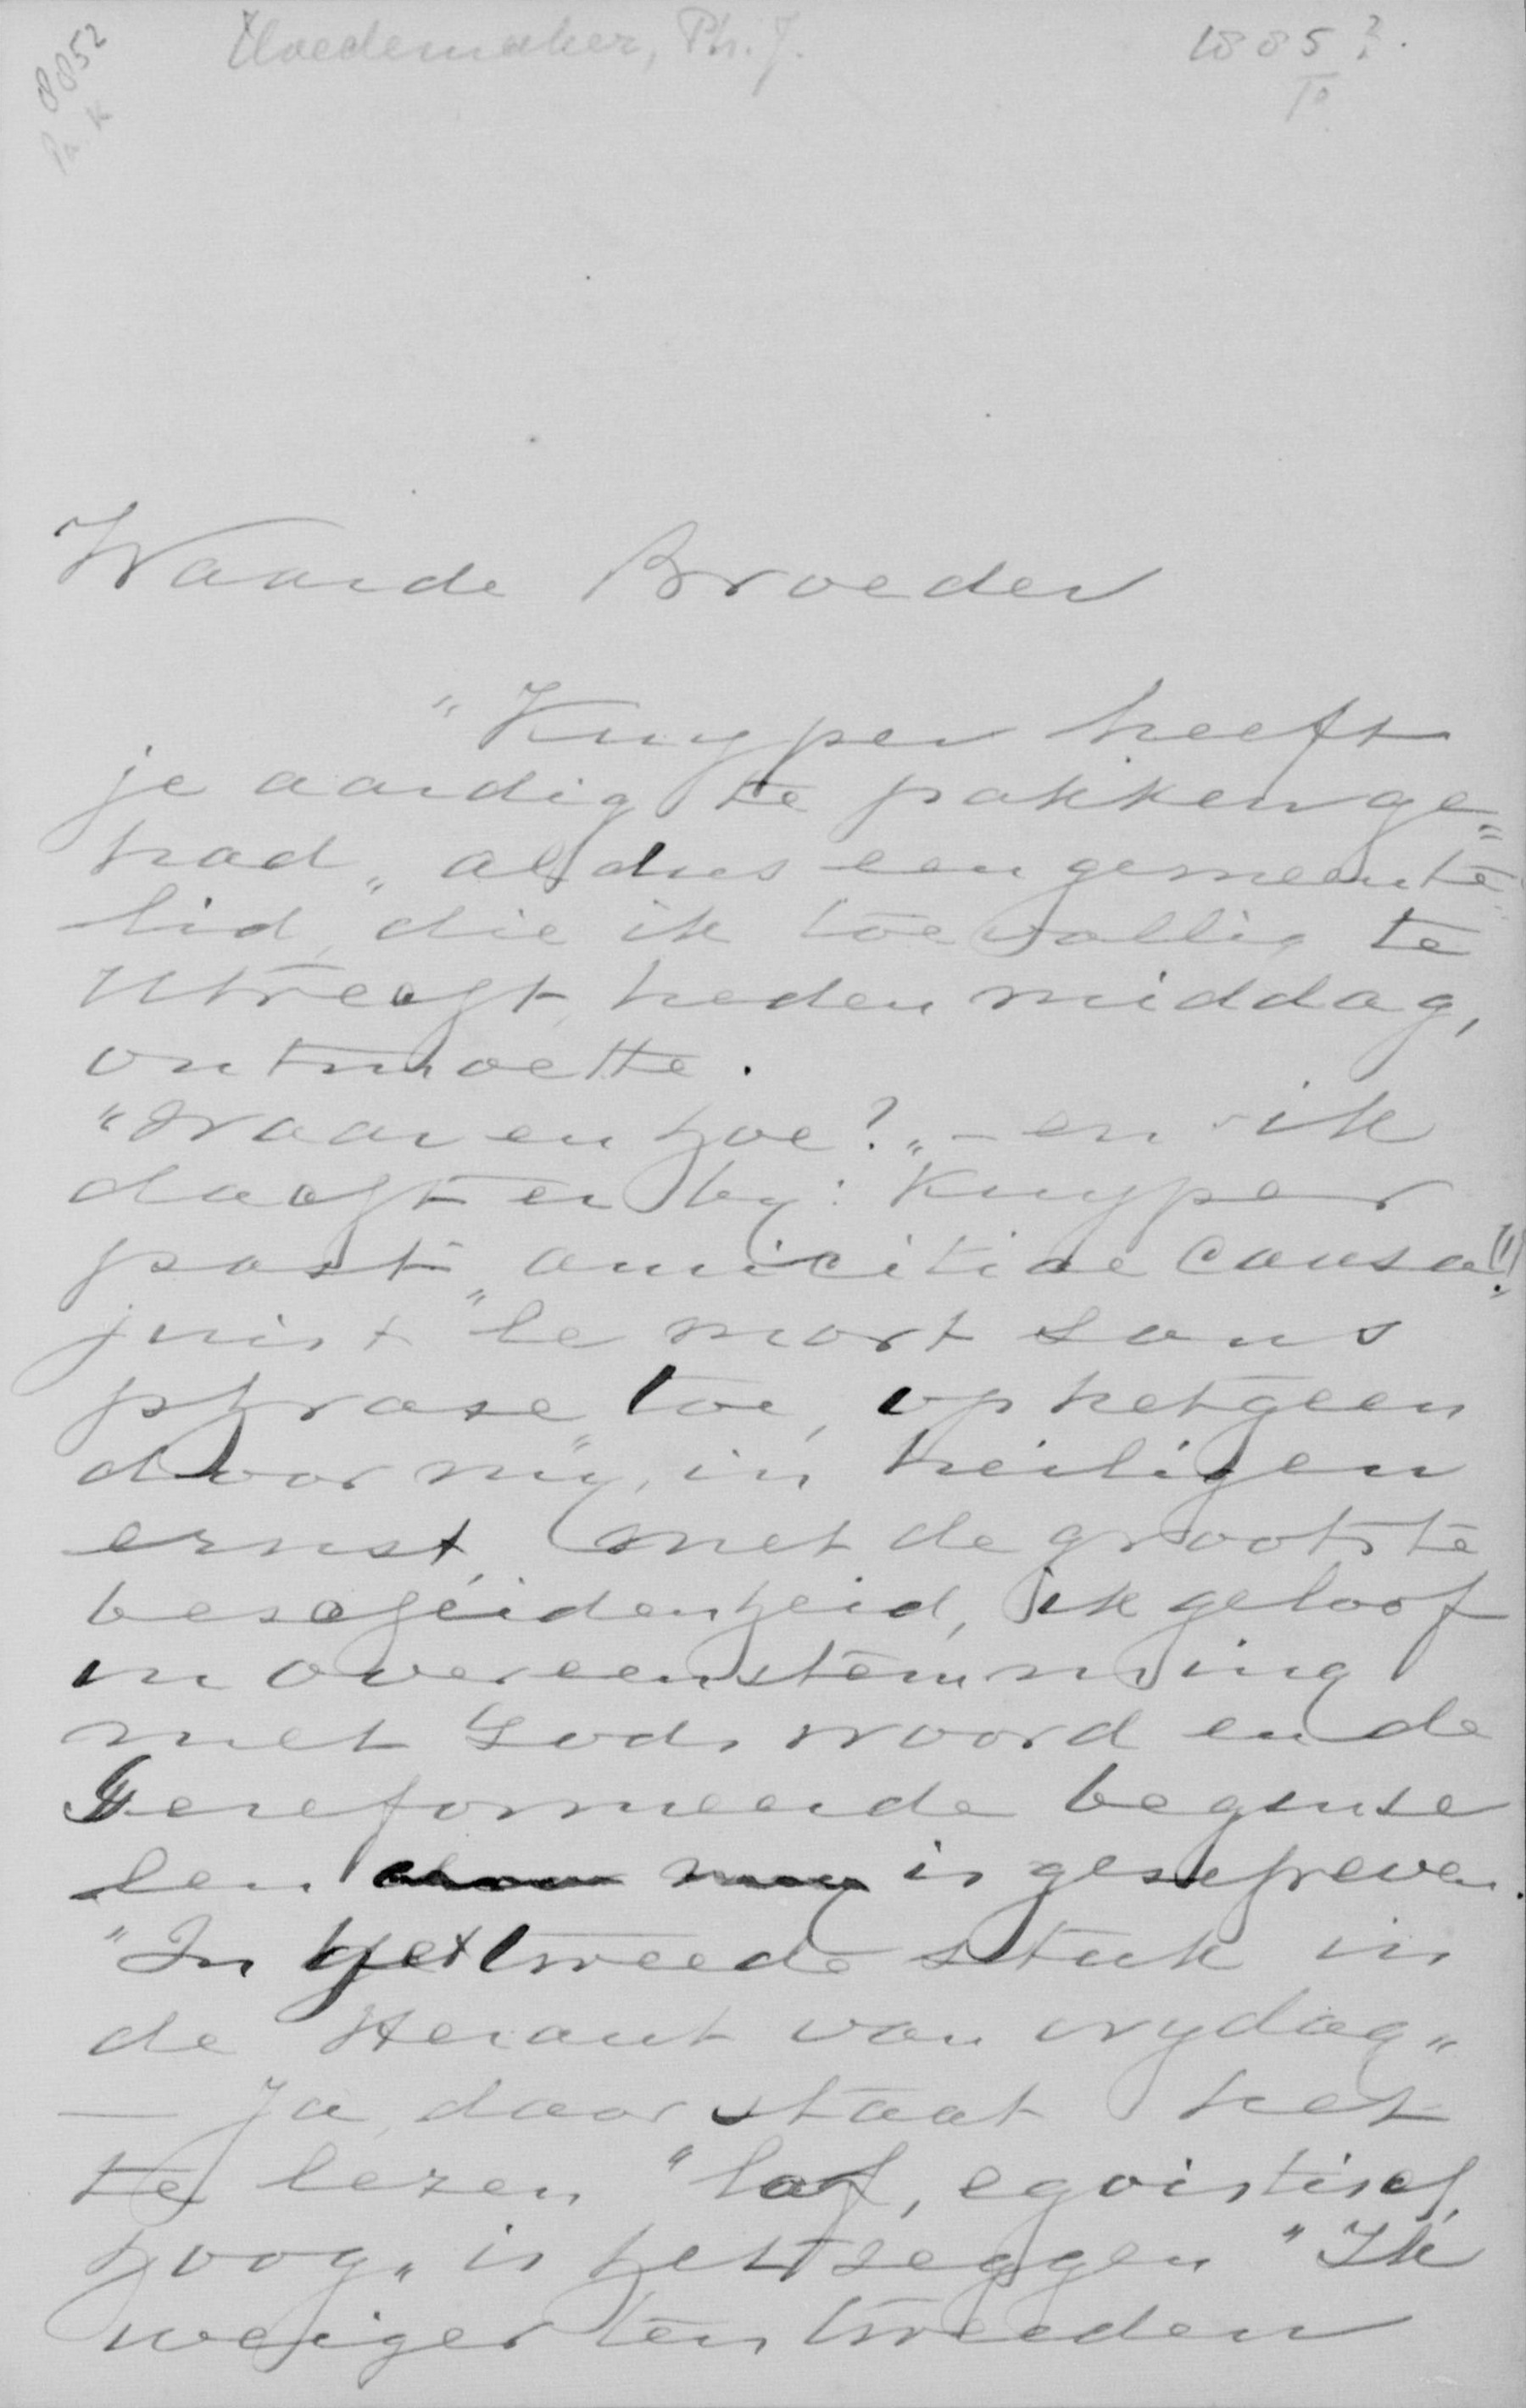 8852
Pa. K
Hoedemaker, Ph. J.
1885?
Waarde Broeder
"Kuyper heeft
je aardig te pakken ge=
had" aldus een gemeente=
lid, die ik toevallig te
Utrecht, heden middag,
ontmoette.
"Waar en hoe?" – en ik
dacht er by: Kuyper
past "amicitiae causa"!!
juist "le mort sans
phrase" toe, op hetgeen
door my, in heiligen
ernst, met de grootste
bescheidenheid, ik geloof
in overeenstemming
met Gods woord en de
Gereformeerde beginse
len is geschreven.
"In het tweede stuk in
de Heraut van vrydag"
— Ja, daar staat het
te lezen "laf, egoistisch,
hoog" is het zeggen "Ik
weiger ten tweeden